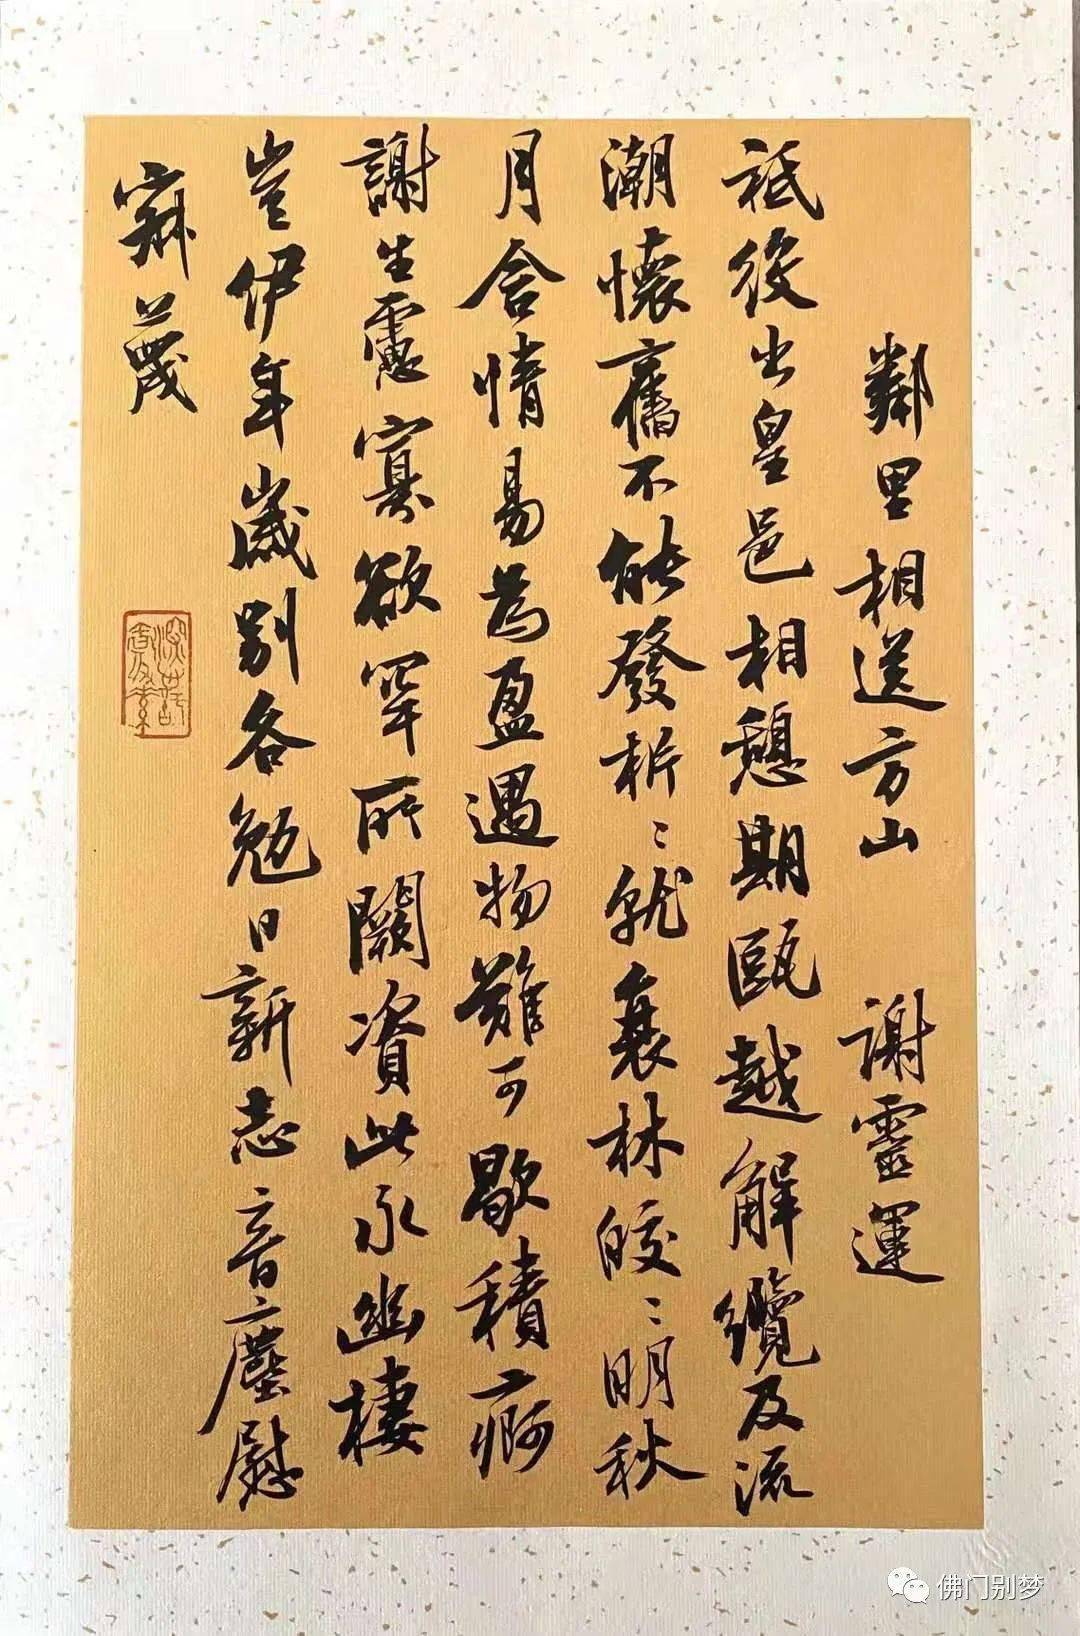 鄰里相送方山 謝靈運
祗役出皇邑相憩期甌越解纜及流
潮懷舊不能發析〻就衰林皎〻明秋
月含情易為盈遇物難可歇積痾
謝生慮寡欲罕所闕資此永幽棲
豈伊年歲別各勉日新志音塵慰
寂蔑
佛门别梦